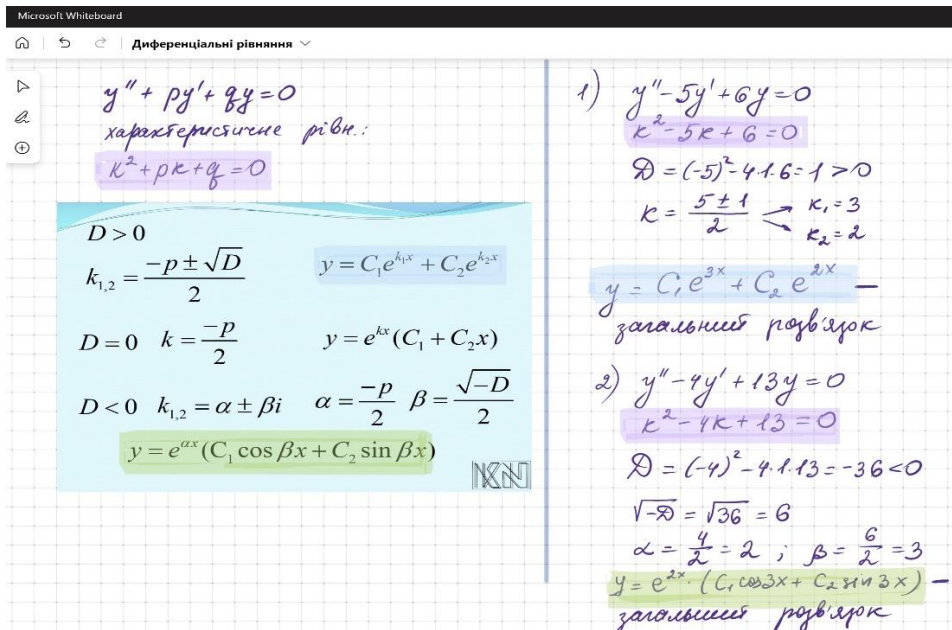 Microsoft Whiteboard
Диференціальні рівняння
y'' + py' + qy = 0
характеристичне рівн.:
k² + pk + q = 0
D > 0
k₁,₂ = (-p ± √D) / 2
y = C₁e^(k₁x) + C₂e^(k₂x)
D = 0 k = -p / 2 y = e^(kx)(C₁ + C₂x)
D < 0 k₁,₂ = α ± βi α = -p / 2 β = √(-D) / 2
y = e^(αx)(C₁ cos βx + C₂ sin βx)
KN
1) y'' - 5y' + 6y = 0
k² - 5k + 6 = 0
D = (-5)² - 4·1·6 = 1 > 0
k = (5 ± 1) / 2 → k₁ = 3
→ k₂ = 2
y = C₁e^(3x) + C₂e^(2x) —
загальний розв'язок
2) y'' - 4y' + 13y = 0
k² - 4k + 13 = 0
D = (-4)² - 4·1·13 = -36 < 0
√(-D) = √36 = 6
α = 4/2 = 2 ; β = 6/2 = 3
y = e^(2x) · (C₁ cos3x + C₂ sin 3x) —
загальний розв'язок